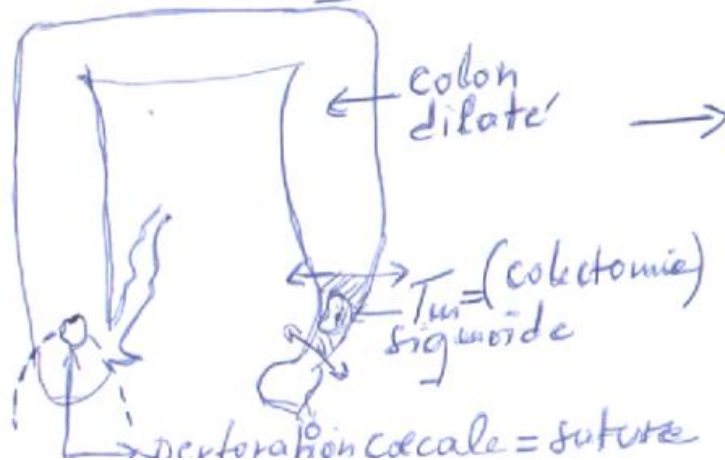 colon
dilaté
Tm=(colectomie)
sigmoïde
perforation cœcale = suture